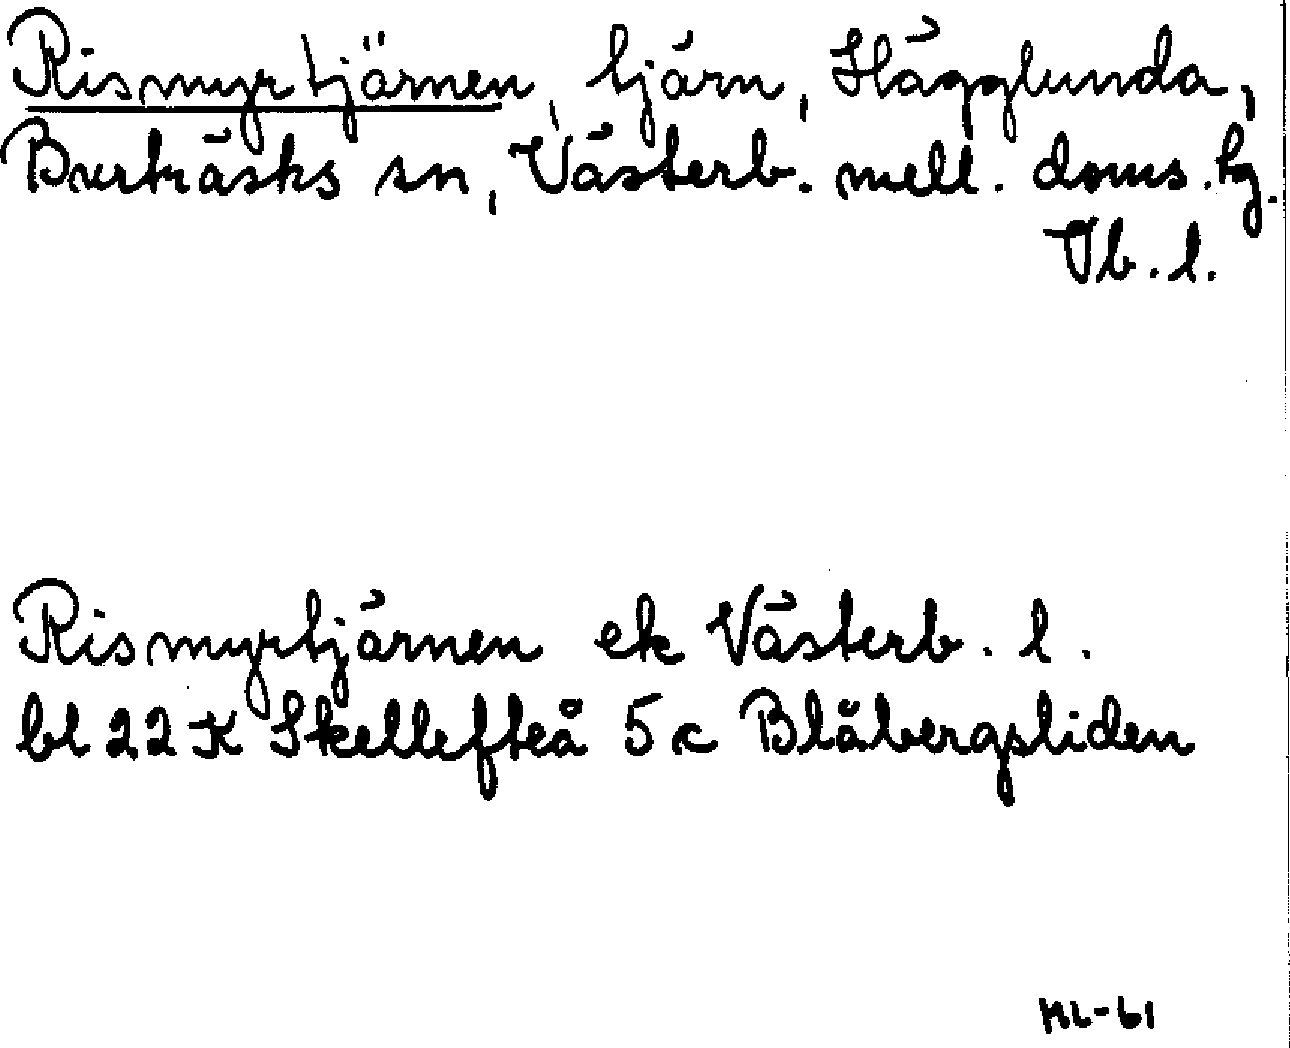 Rismyrtjärnen, tjärn, Hägglunda,
Burträsks sn, Västerb. mell. doms. tg.
Vb. l.
Rismyrtjärnen ek Västerb. l.
bl 22 K Skellefteå 5 c Blåbergsliden
ML-61